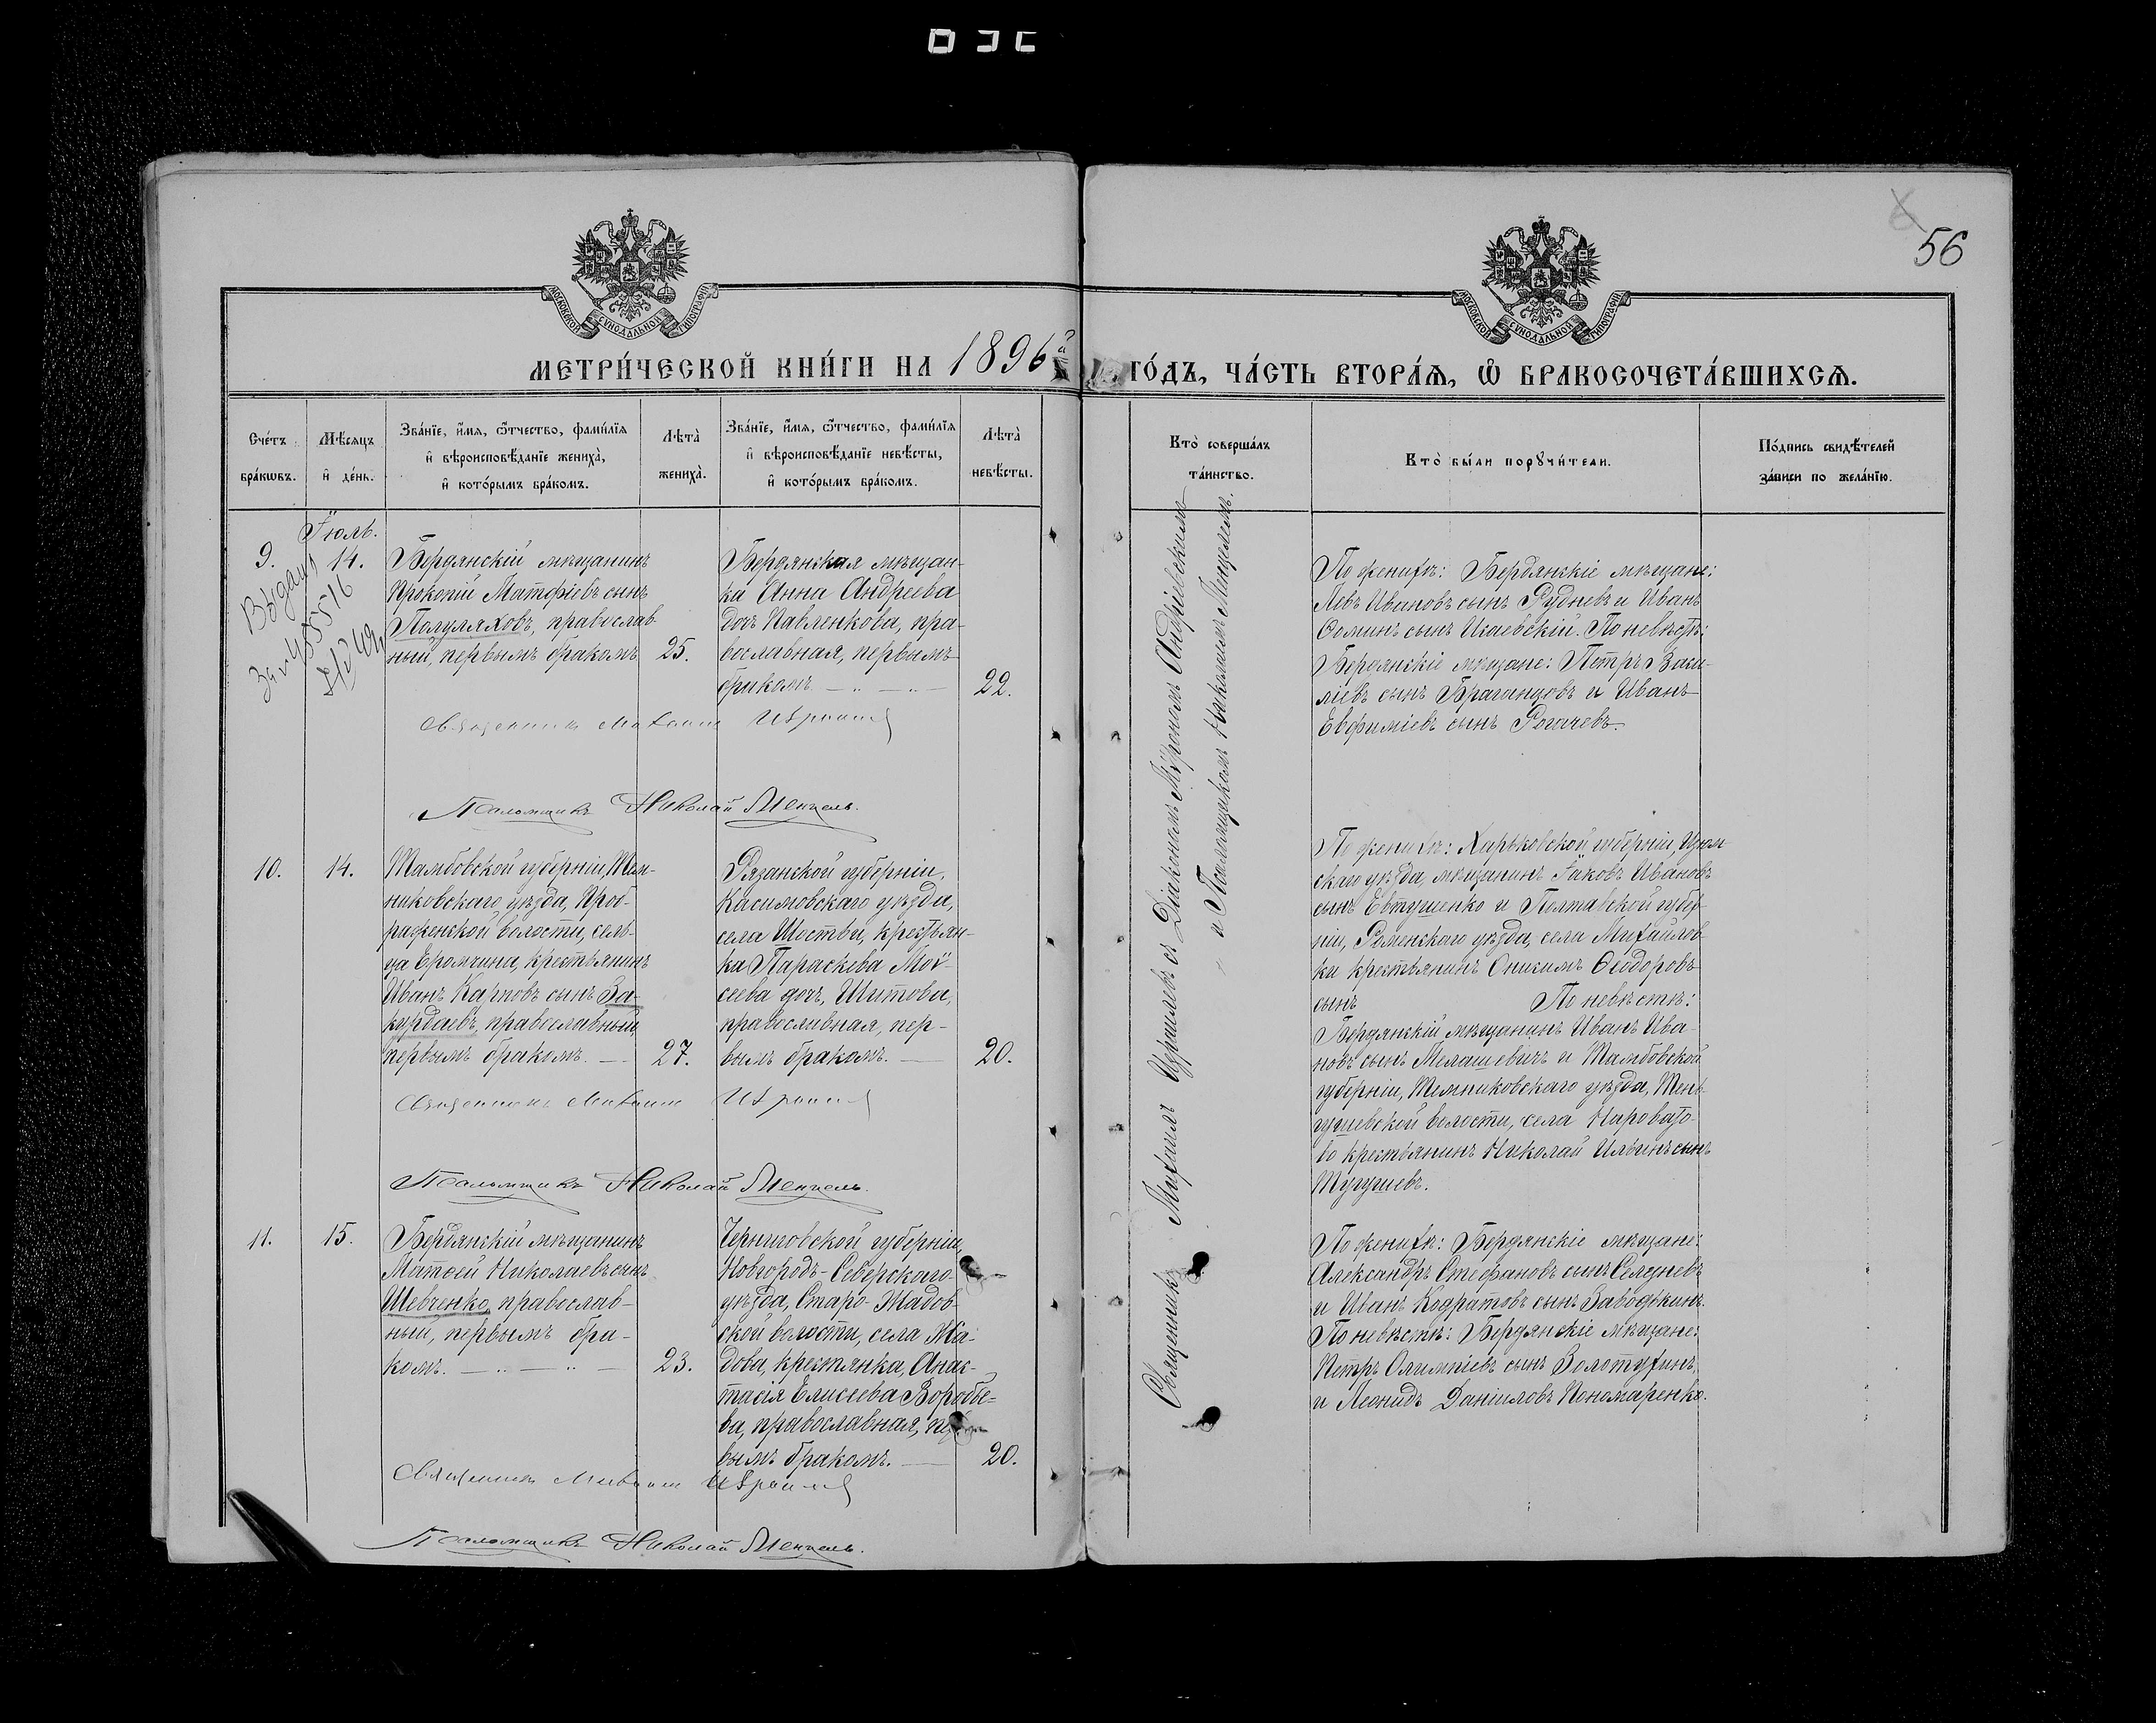 56
МОСКОВСКОЙ СУНОДАЛЬНОЙ ТИПОГРАФІИ
МОСКОВСКОЙ СУНОДАЛЬНОЙ ТИПОГРАФІИ
МЕТРИ́ЧЕСКОЙ КНИ́ГИ НА 1896й ГО́ДЪ, ЧА́СТЬ ВТОРА́Я, Ѽ БРАКОСОЧЕТА́ВШИХСѦ.
Сче́тъ бра́кѡвъ.
Мѣ́сяцъ и҆ де́нь.
Зва́нїе, и҆́мѧ, ѻ҆́тчество, фами́лїѧ
и҆ вѣроисповѣ́данїе жениха̀,
и҆ кото́рымъ бра́комъ.
Лѣта̀ жениха̀.
Зва́нїе, и҆́мѧ, ѻ҆́тчество, фами́лїѧ
и҆ вѣроисповѣ́данїе невѣ́сты,
и҆ кото́рымъ бра́комъ.
Лѣта̀ невѣ́сты.
Кто̀ соверша́лъ та́инство.
Кто̀ бы́ли порꙋчи́тели.
По́дпись свидѣ́телей за́писи по жела́нїю.
Іюль.
9.
14.
Бердянскій мѣщанинъ
Прокопій Матфіевъ сынъ
Полуляховъ, православ-
ный, первымъ бракомъ
25.
Бердянская мѣщан-
ка Анна Андреева
дочь Павленкова, пра-
вославная, первымъ
бракомъ
22.
По женихѣ: Бердянскіе мѣщане:
Левъ Ивановъ сынъ Рудневъ и Иванъ
Ѳоминъ сынъ. По невѣстѣ:
Бердянскіе мѣщане: Петръ Васи-
ліевъ сынъ и Иванъ
Евфиміевъ сынъ Рогачевъ.
Священникъ Михаилъ
Псаломщикъ Николай Менцель.
10.
14.
Тамбовской губерніи, Тем-
никовскаго уѣзда,
волости, сель-
ца, крестьянинъ
Иванъ Карповъ сынъ За-
курдаевъ, православный,
первымъ бракомъ.
27.
Рязанской губерніи,
Касимовскаго уѣзда,
села, крестьян-
ка Параскева Моѵ-
сеева дочь, Шитова,
православная, пер-
вымъ бракомъ.
20.
По женихѣ: Харьковской губерніи, Изюм-
скаго уѣзда, мѣщанинъ Іаковъ Ивановъ
сынъ Евтушенко и Полтавской губер-
ніи, Роменскаго уѣзда, села Михайлов-
ки крестьянинъ Онисимъ Ѳеодоровъ
сынъ По невѣстѣ:
Бердянскій мѣщанинъ Иванъ Ива-
новъ сынъ и Тамбовской
губерніи, Темниковскаго уѣзда, Тень-
гушевской волости, села Нароват-
во крестьянинъ Николай Ильинъ сынъ
Священникъ Михаилъ
Псаломщикъ Николай Менцель.
11.
15.
Бердянскій мѣщанинъ
Матѳей Николаевъ сынъ
Шевченко, православ-
ный, первымъ бра-
комъ.
23.
Черниговской губерніи,
Новгородъ-Северскаго
уѣзда, Старо-Жадов-
ской волости, села Жа-
дова, крестянка, Анас-
тасія Елисеева Воробье-
ва, православная, пер-
вымъ бракомъ.
20.
По женихѣ: Бердянскіе мѣщане:
Александръ Стефановъ сынъ Селезневъ
и Иванъ Кодратовъ сынъ Заводкинъ.
По невѣстѣ: Бердянскіе мѣщане:
Петръ Олимпіевъ сынъ Золотухинъ
и Леонидъ Даніиловъ Пономаренко.
Священникъ Михаилъ
Псаломщикъ Николай Менцель.
Священникъ Михаилъ съ Діакономъ Мѵрономъ Андріевскимъ
и Псаломщикомъ Николаемъ Менцелемъ.